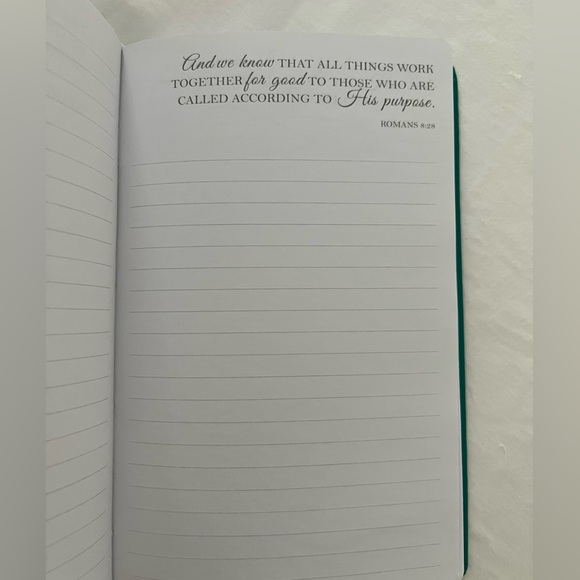 And we know THAT ALL THINGS WORK
TOGETHER for good TO THOSE WHO ARE
CALLED ACCORDING TO His purpose.
ROMANS 8:28